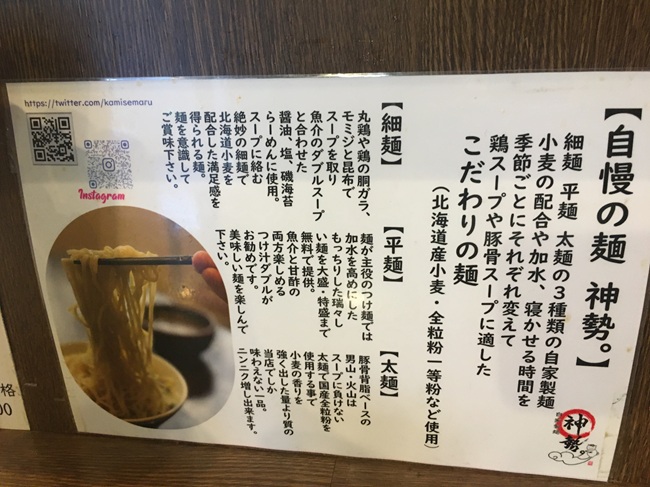 【自慢の麺 神勢。】
細麺 平麺 太麺の3種類の自家製麺
小麦の配合や加水、寝かせる時間を
季節ごとにそれぞれ変えて
鶏スープや豚骨スープに適した
こだわりの麺
（北海道産小麦・全粒粉一等粉など使用）
【細麺】
丸鶏や鶏の胴ガラ、
モミジと昆布で
スープを取り
魚介のダブルスープ
と合わせた
醤油、塩、磯海苔
らーめんに使用。
スープに絡む
絶妙の細麺で
北海道小麦を
配合した満足感を
得られる麺。
麺を意識して
ご賞味下さい。
【平麺】
麺が主役のつけ麺では
加水を高めにした
もっちりした瑞々し
い麺を大盛・特盛まで
無料で提供。
魚介と甘酢の
両方楽しめる
つけ汁ダブルが
お勧めです。
美味しい麺を楽しんで
下さい。
【太麺】
豚骨背脂ベースの
男山・火山は
スープに負けない
太麺で国産全粒粉を
使用する事で
小麦の香りを
強く出した量より質の
当店でしか
味わえない一品。
ニンニク増し出来ます。
https://twitter.com/kamisemaru
Instagram
神勢。
格
00